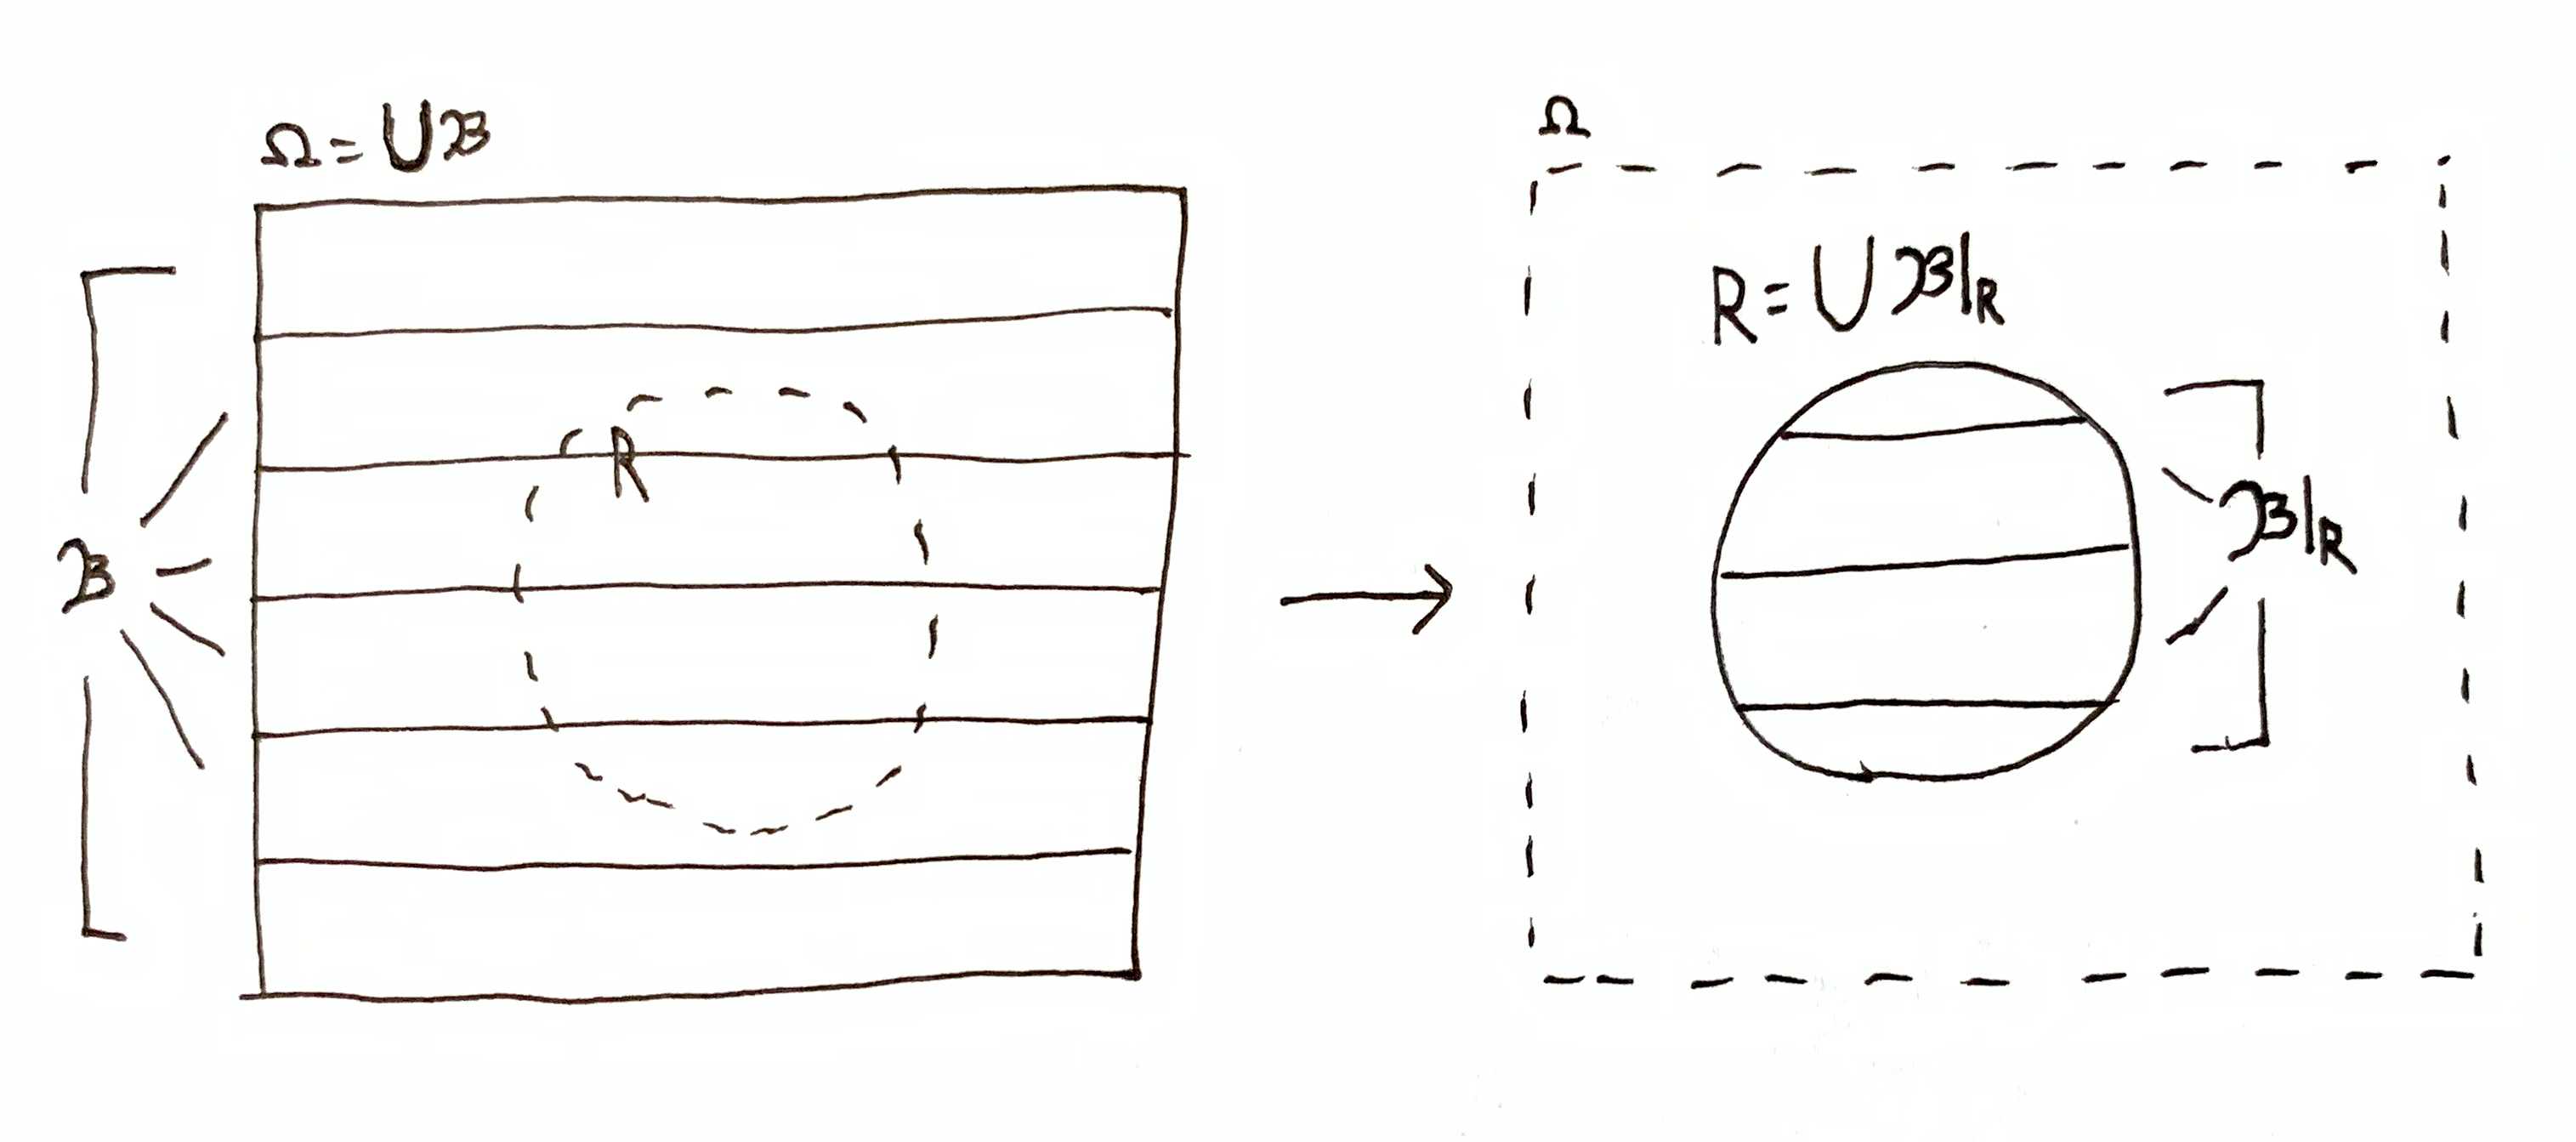 Ω = ∪ℬ
R
ℬ
Ω
R = ∪ ℬ|R
ℬ|R